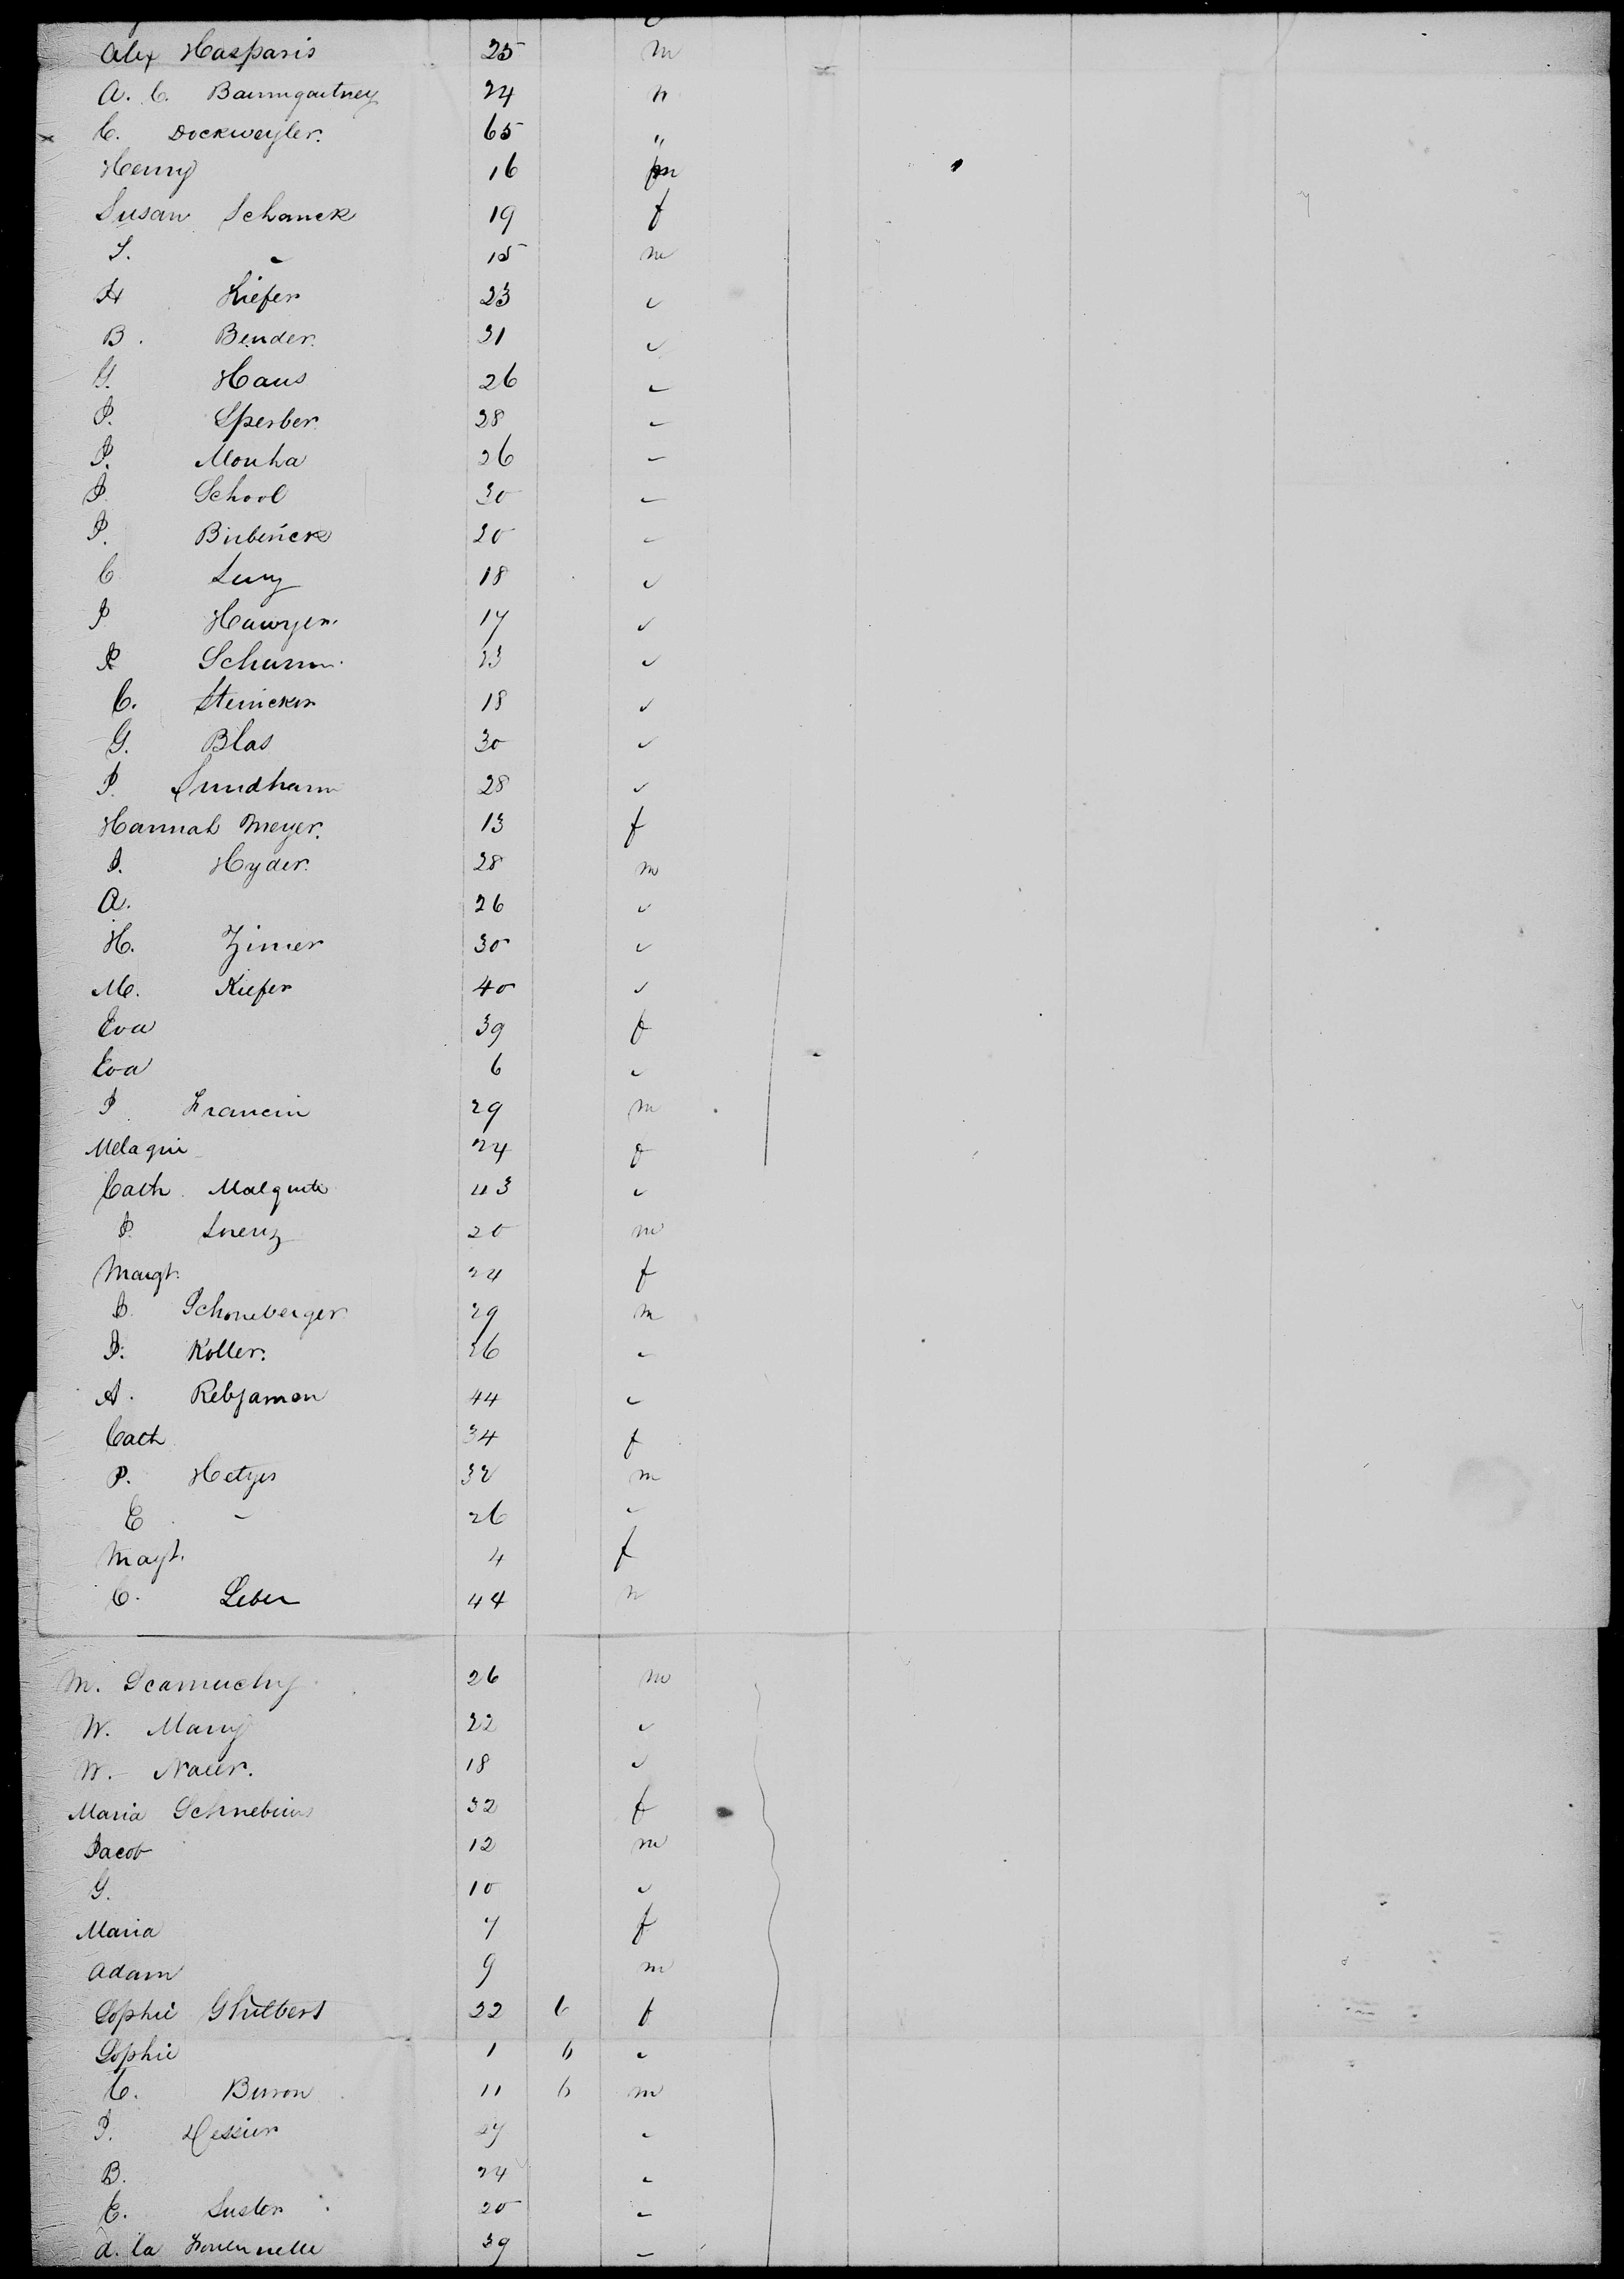 Alex Hasparis 25 m
A. C. Baumgartney 24 "
C. Dockweyler. 65 "
Henry 16 m
Susan Schanck 19 f
S. - 15 m
H Kiefer 23 "
B. Bender. 31 "
G. Haus 26 "
P. Sperber 28 "
P. Mouha 26 "
P School 30 "
P. Birbenck 20 "
C Levy 18 "
P Hawyer. 17 "
P Schumm. 23 "
C. Steincker 18 "
G. Blas 30 "
P. Sundham 28 "
Hannah Meyer. 13 f
J. Hyder. 28 m
A. 26 "
H. Zimer 30 "
M. Kiefer 40 "
Eva 39 f
Eva 6 "
P. Francin 29 m
Melaqui 24 f
Cath Malquite 43 "
P. Lorenz 20 m
Margt. 24 f
B. Schoneberger 29 m
P. Koller. 26 "
A. Rebjamen 44 "
Cath 34 f
P. Hetyes 32 m
E - 26 "
Magt. 4 f
C. Leber 44 m
M. 26 m
W. Many 22 "
W. Nauer. 18 "
Maria 32 f
Jacob 12 m
G. 10 "
Maria 7 f
Adam 9 m
Sophie 22 6 f
Sophie 1 6 "
C. Buron 11 6 m
P. Hessier 27 "
B. 24 "
E. Suster 20 "
A. la Fontennelle 39 "